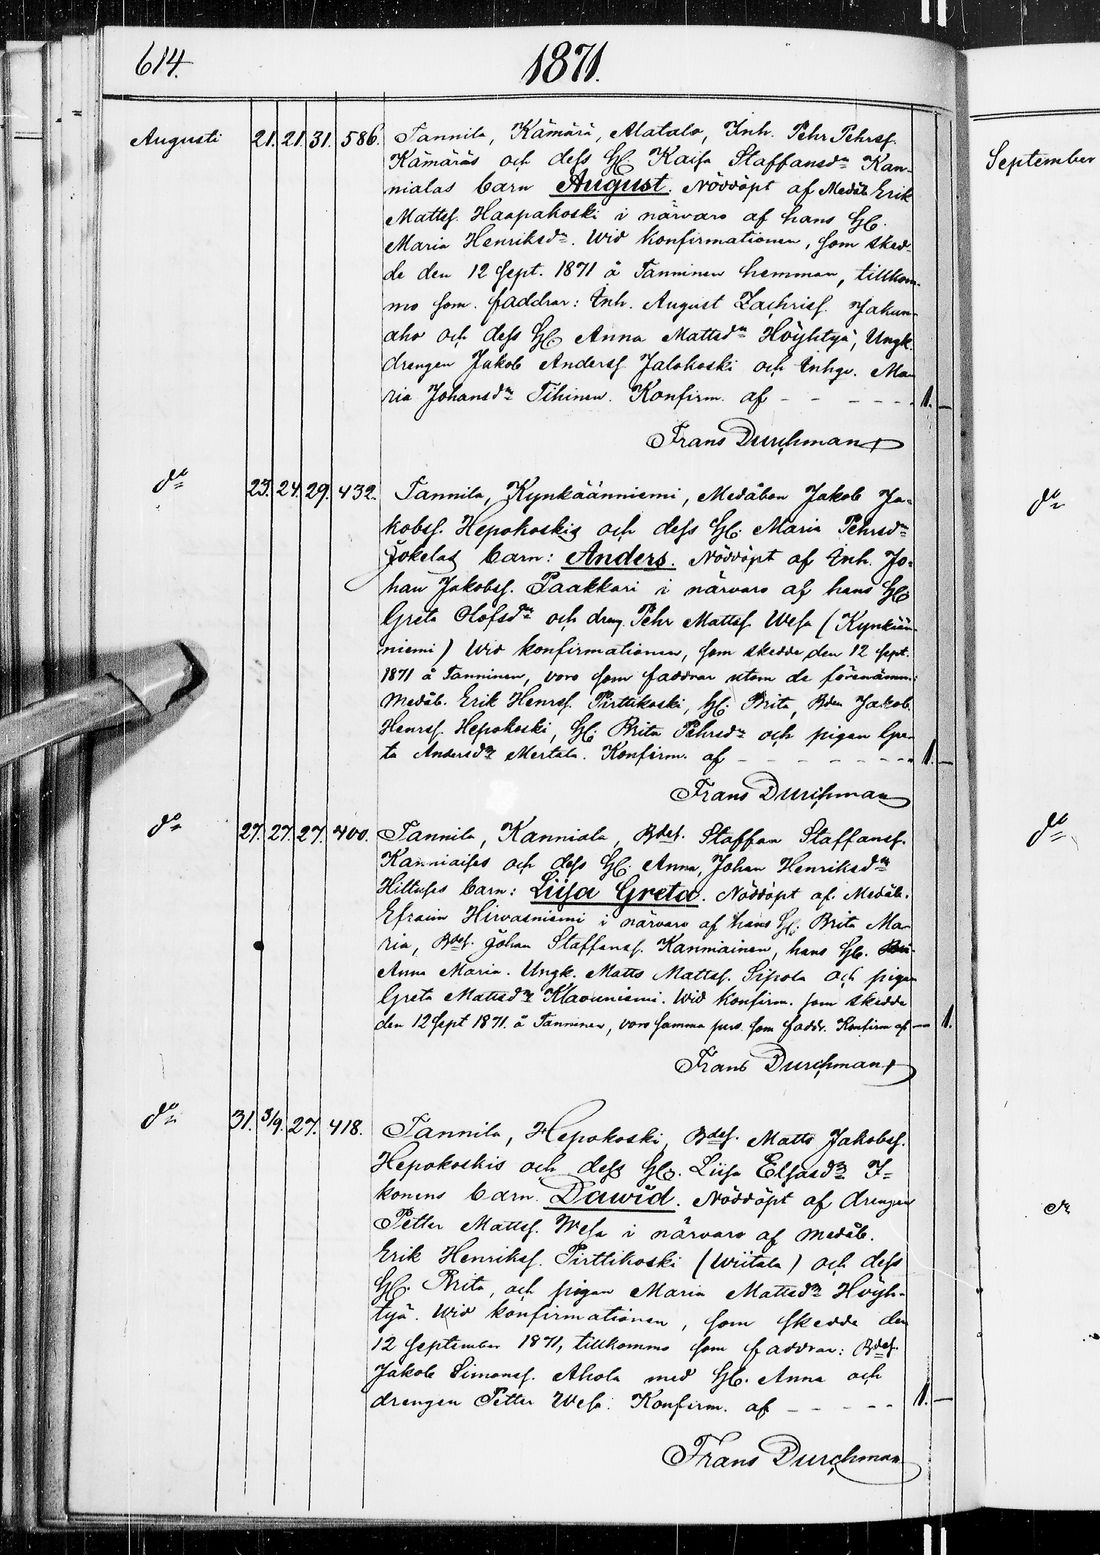 614.
1871.
Augusti 21. 21. 31. 586. Tannila, Kämärä, Alatalo, Inh. Pehr Pehrss.
Kämäräs och dess H. Kaisa Staffansdr Kan-
nialas barn August. Nöddöpt af Medåb. Erik
Mattss. Haapakoski i närvaro af hans H.
Maria Henriksdr. Wid konfirmationen, som sked-
de den 12 Sept. 1871 å Tanninen hemman, tillkom-
mo som faddrar: Inh. August Zachriss. Jakun-
aho och dess H. Anna Mattsdr Höyhtyä, Ungk.
drengen Jakob Anderss. Jalokoski och Inhqv. Ma-
ria Johansdr Tihinen. Konfirm. af - - - - - - 1. —
Frans Durchman
do 23. 24. 29. 432. Tannila, Kynkäänniemi, Medåbon Jakob Ja-
kobss. Hepokoskis och dess H. Maria Pehrsdr
Jokelas barn: Anders. Nöddöpt af Inh. Jo-
han Jakobss. Paakkari i närvaro af hans H.
Greta Olofsdr och dreng. Pehr Mattss. Wesa (Kynkään-
niemi) Wid konfirmationen, som skedde den 12 Sept.
1871 å Tanninen, voro som faddrar utom de förenämn:
Medåb. Erik Henrss. Pirttikoski, H. Brita, Bden Jakob
Henrss. Hepokoski, H. Brita Pehrsdr och pigan Gre-
ta Andersdr Mertala. Konfirm. af - - - - - - - 1. —
Frans Durchman
do 27. 27. 27. 400. Tannila, Kanniala, Bdes. Staffan Staffanss.
Kanniaises och dess H. Anna Johan Henriksdr
Hiltuses barn: Liisa Greta. Nöddöpt af Medåb.
Efraim Hirvasniemi i närvaro af hans H. Brita Ma-
ria, Bdes. Johan Staffanss. Kanniainen, hans H.
Anna Maria. Ungk. Matts Mattss. Sipola och pigan
Greta Mattsdr Klavuniemi. Wid Konfirm. som skedde
den 12 Sept 1871. å Tanninen, voro samma pers. som fadd. Konfirm af — 1.
Frans Durchman
do 31. 3/9. 27. 418. Tannila, Hepokoski, Bdes. Matts Jakobss.
Hepokoskis och dess H. Liisa Elsasdr I-
konens barn. Dawid. Nöddöpt af drengen
Petter Mattss. Wesa i närvaro af Medåb.
Erik Henrikss. Pirttikoski (Wiitala) och dess
H. Brita, och pigan Maria Mattsdr Höyh-
tyä. Wid konfirmationen, som skedde den
12 September 1871, tillkommo som faddrar: Bdes.
Jakob Simonss. Ahola med H. Anna och
drengen Petter Wesa. Konfirm. af - - - - - 1. —
Frans Durchman
September
do
do